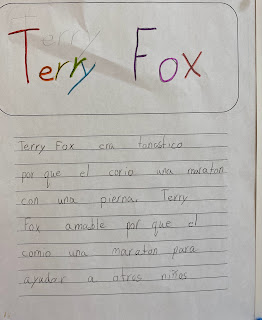 Terry Fox
Terry Fox era fanastico
por que el corio una maraton
con una pierna. Terry
Fox amable por que el
corrio una maraton para
ayudar a otros niños